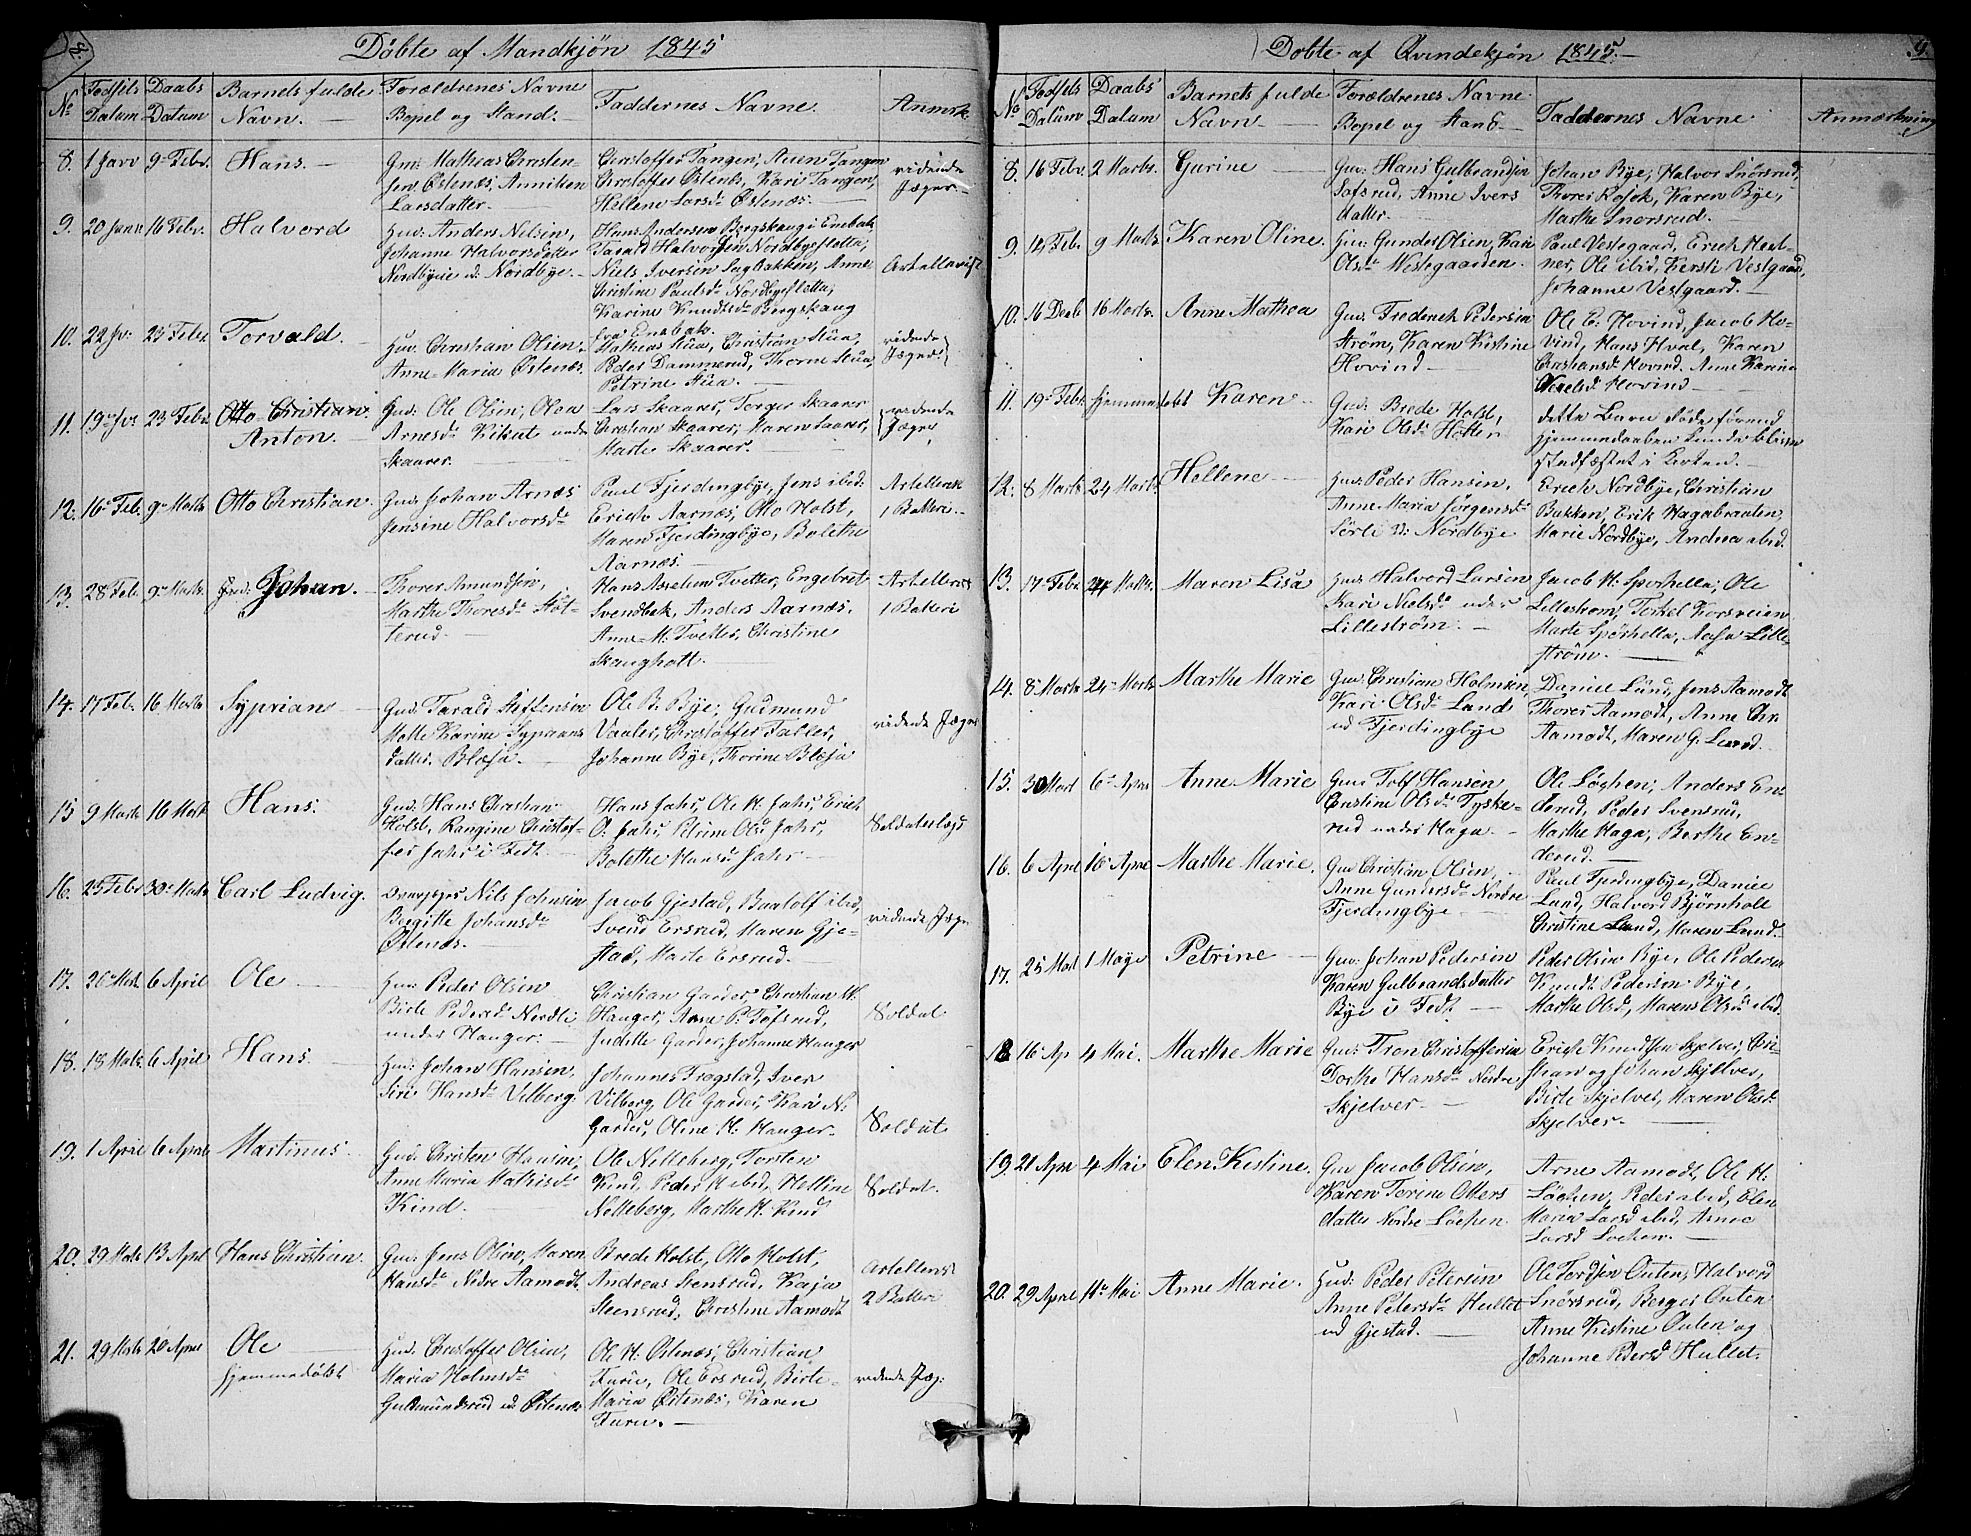 8.
Döbte af Mandkjøn 1845
No
Fødsels Datum
Daabs Datum
Barnets fulde Navn.
Forældrenes Navne Bopel og Stand.
Faddernes Navne
Anmærk
8. 1 Janv 9 Febr. Hans.
Gm: Mathias Christensen Østenæs, Anniken Larsdatter.
Christoffer Tangen,
Christoffer Østenæs, Kari Tangen,
Hellene Larsd Østenæs.
ridende Jæger.
9. 20 Janv 16 Febr. Halvord
Gud: Anders Nilsen,
Johanne Halvorsdatter
Nordbyeie u: Nordbye.
Hans Andersen Bergskaug i Enebak,
Tarald Halvorsen Nordbysletta,
Niels Iversen Sagbakken, Anne
Christine Paulsd Nordbysletta,
Karine Knudtsd Bergskaug
fra Enebak.
Artellerist
10. 22 Jv: 23 Febr. Torvald.
Gud: Christian Olsen
Anne Maria Østenæs.
Mathias Stua, Christian Stua,
Peder Dammerud, Thorne Stua,
Petrine Stua.
ridende Jæger
11. 19 Jv: 23 Febr Otto Christian Anton.
Gud: Ole Olsen, Olea
Arnesd. Kikut under
Skaarer.
Lars Skaarer, Torger Skaarer
Christian Skaarer, Karen Skaarer,
Marte Skaarer.
ridende Jæger
12. 16 Feb. 9 Marts Otto Christian.
Gud: Johan Arnæs
Jensine Halvorsd
Paul Fjerdingbye, Jens ibid:
Erich Aarnæs, Otto Holst,
Maren Fjerdingbye, Bolethe
Aarnæs.
Artellerist
1 Batteri.
13. 28 Feb. 9 Marts Johan.
Thorer Amundsen,
Marthe Thoresd Støtterud
Hans Tvetter, Engebret
Svendbek, Anders Aarnæs,
Anne M. Tvetter, Christine
Skaugholt.
Artellerist
1 Batteri
14. 17 Feb. 16 Marts Syprian
Gud: Tarald Steffensen
Mette Karine Syprians
datter. Blæsa.
Ole B. Bye, Gudmund
Vaaler, Christoffer Faller,
Johanne Bye, Thorine Blæsa
ridende Jæger
15 9 Marts 16 Marts Hans.
Gud: Hans Christian
Holst, Rangine Christoffer
Jahr i Fedt.
Hans Jahr, Ole H. Jahr, Erich
O: Jahr, Petrine Olsd Jahr,
Bolethe Hansd Jahr
Soldaterlægd
16. 25 Febr 30 Marts Carl Ludvig.
Nils Johnsen
Bergitte Johansd
Østenæs.
Jacob Gjestad, ibid,
Svend Ersrud, Maren Gjestad,
Marte Ersrud.
ridende Jæger
17. 26 Mart 6 April Ole
Gud: Peder Olsen
Birte Pedersd Nordli
under Hauger.
Christian Garder, Christian H.
Hauger, Anne P. Tofsrud,
Judithe Garder, Johanne Hauger
Soldat
18. 18 Marts 6 April Hans
Gud: Johan Hansen,
Siri Hansd Vilberg.
Johannes Frøgstad, Iver
Vilberg, Ole Garder, Kari N:
Garder, Oline H: Hauger.
Soldat
19. 1 April 6 April Martinus
Gud: Christen Hansen,
Anne Maria Mathisd
Kind.
Ole Nelleberg, Torsten
Kind, Peder H ibid, Helline
Nelleberg, Marthe H. Kind
Soldat.
20. 29 Marts 13 April Hans Christian.
Gud: Jens Olsen, Maren
Hansd Nedre Aamodt
Brede Holst, Otto Holst,
Andreas Stensrud, Kaja
Steensrud, Christine Aamodt
Artellerist
2 Batteri
21. 29 Marts 20 April Ole
hjemmedøbt
Gud: Christoffer Olsen,
Maria Holmsd
Gulmundsrud u. Østenæs
Ole H. Østenæs, Christian
Furu, Ole Ersrud, Birte
Maria Østenæs, Karen
Furu.
ridende Jæg:
9.
Døbte af Qvindekjøn 1845.
No
Fødsels Datum
Daabs Datum
Barnets fulde Navn
Forældrenes Navne Bopel og Stand
Faddernes Navne
Anmærkning
8. 16 Febr. 2 Marts. Gurine
Gud: Hans Gulbrandsen
Tofsrud, Anne Ivers
datter.
Johan Bye, Halvor Snørsrud,
Thorer Kosok, Karen Bye,
Marthe Snørsrud.
9. 14 Feb. 9 Marts. Karen Oline.
Gud: Gunder Olsen, Kari
Olsd Westegaarden.
Paul Vestegaard, Erich
Ole ibid, Kersti Vestgaard,
Johanne Vestgaard.
10. 16 16 Marts. Anne Mathea
Gud: Frederich Pedersen
Strøm, Karen Kristine
Hovind
Ole E. Hovind, Jacob Hovind,
Hans Hval, Karen
Christiansd Hovind. Anne Karine
Hovind
11. 19 Febr. hjemmedøbt Karen
Gud: Brede Holst,
Kari Olsd Holter
dette Barn døde førend
hjemmedaaben kunde bliven
stadfæstet i Kirken.
12. 8 Marts 24 Marts. Hellene
Gud: Peder Hansen,
Anne Maria Jørgensd
Sørli u: Nordbye
Erich Nordbye, Christian
Bakken, Erik Hagabraaten
Marie Nordbye, Andrea ibid.
13. 17 Febr 24 Marts. Maren Lisa
Gud: Halvord Larsen
Kari Nielsd under
Lillestrøm.
Jacob H. Spørhella, Ole
Lillestrøm, Torkel Korsveien
Marte Spørhella, Aasa Lillestrøm.
14. 8 Marts 24 Marts Marthe Marie
Gud: Christian Holmsen,
Kari Olsd Lund
ud Fjerdingbye
Daniel Lund, Jens Aamodt
Thorer Aamodt, Anne Chr.
Aamodt, Maren G. Lund.
15. 30 Mart 6 Apr Anne Marie
Gud: Tolf Hansen
Cristine Olsd Tyskerud
under Haga.
Ole Løchen, Anders Enderud,
Peder Svensrud,
Marthe Haga, Berthe Enderud.
16. 6 April 16 April Marthe Marie.
Gud: Christian Olsen,
Anne Gundersd Nordre
Fjerdingbye
Paul Fjerdingbye, Daniel
Lund, Halvord Bjørnholt
Christine Lund, Maren Lund.
17. 25 Mart 1 Maye Petrine
Gud: Johan Pedersen
Karen Gulbrandsdatter
Bye i Fedt
Peder Olsen Bye, Ole Pedersen
Knudt Pedersen Bye,
Marthe Olsd, Maren Olsd ibid.
18 16 Ap 4 Mai. Marthe Marie
Gud: Tron Christoffersen
Dorthe Hansd Nedre
Skjelver
Erich Knudsen Skjelver, Cristian
og Johan Skjelver,
Birte Skjelver, Maren Olsd
Skjelver.
19. 21 Apr 4 Mai Elen Kristine.
Gud Jacob Olsen,
Karen Torine Otters
datter Nordre Løchen
Arne Aamodt, Ole H.
Løchen, Peder ibid, Elen
Maria Larsd ibid, Anne
Larsd Lochen.
20. 29 April 11 Mai Anne Marie.
Gud: Peder Petersen
Anne Petersd Hullet
ud Gjestad.
Ole Tordsen Outen, Halvord
Snørsrud, Berger Outen
Anne Kristine Outen og
Johanne Pedersd Hullet.